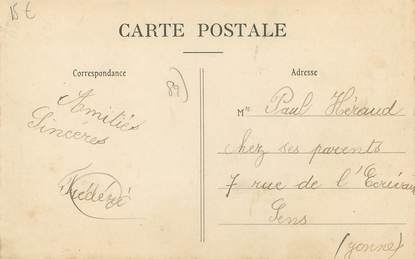 15 €
CARTE POSTALE
Correspondance
89
Adresse
Amitiés
Sincères
M Paul Héraud
chez ses parents
7 rue de l'Ecrivain
Sens
(Yonne)